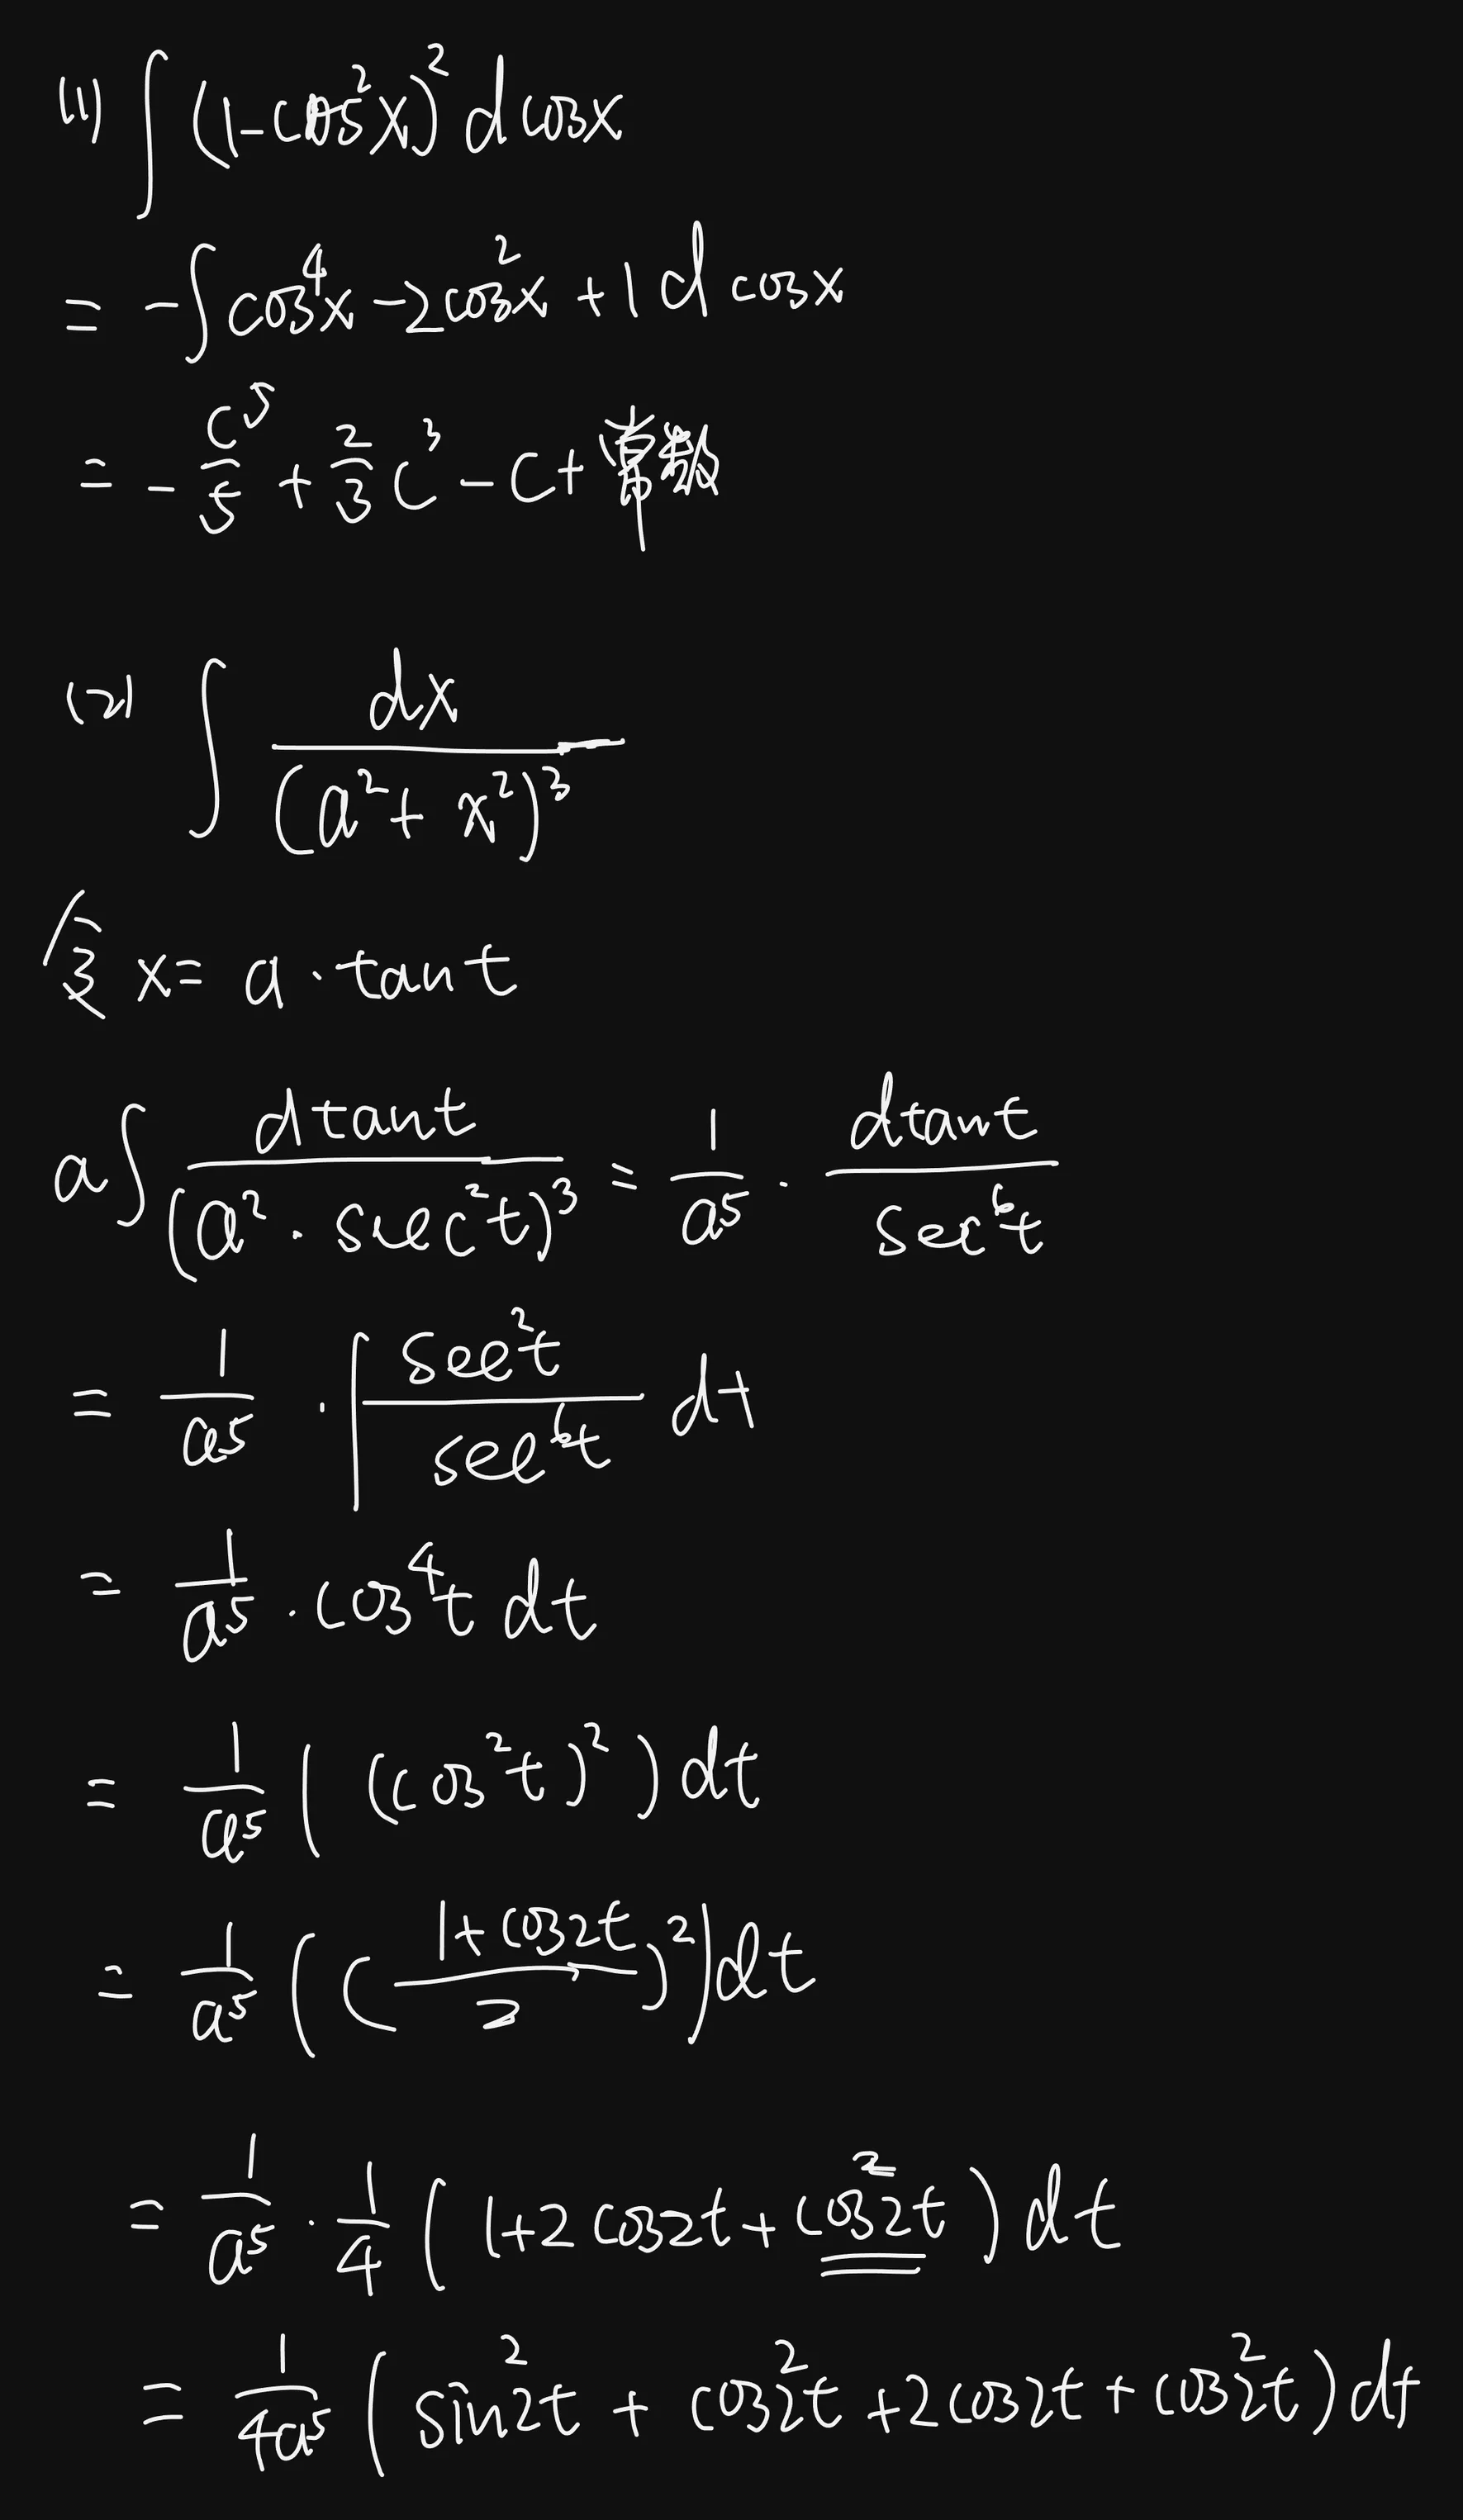 (1) ∫ (1-cos²x)² d cosx
= -∫ cos⁴x - 2cos²x + 1 d cosx
= - c⁵/5 + 2/3 c³ - c + 常数
(2) ∫ dx/(a²+x²)³
令 x = a·tant
a∫ dtant/(a²·sec²t)³ = 1/a⁵ · dtant/sec⁶t
= 1/a⁵ · ∫ sec²t/sec⁶t dt
= 1/a⁵ · cos⁴t dt
= 1/a⁵ ( (cos²t)² ) dt
= 1/a⁵ ( ( (1+cos2t)/2 )² ) dt
= 1/a⁵ · 1/4 ( 1+2cos2t+cos²2t ) dt
= 1/4a⁵ ( sin²2t + cos²2t + 2cos2t + cos²2t ) dt